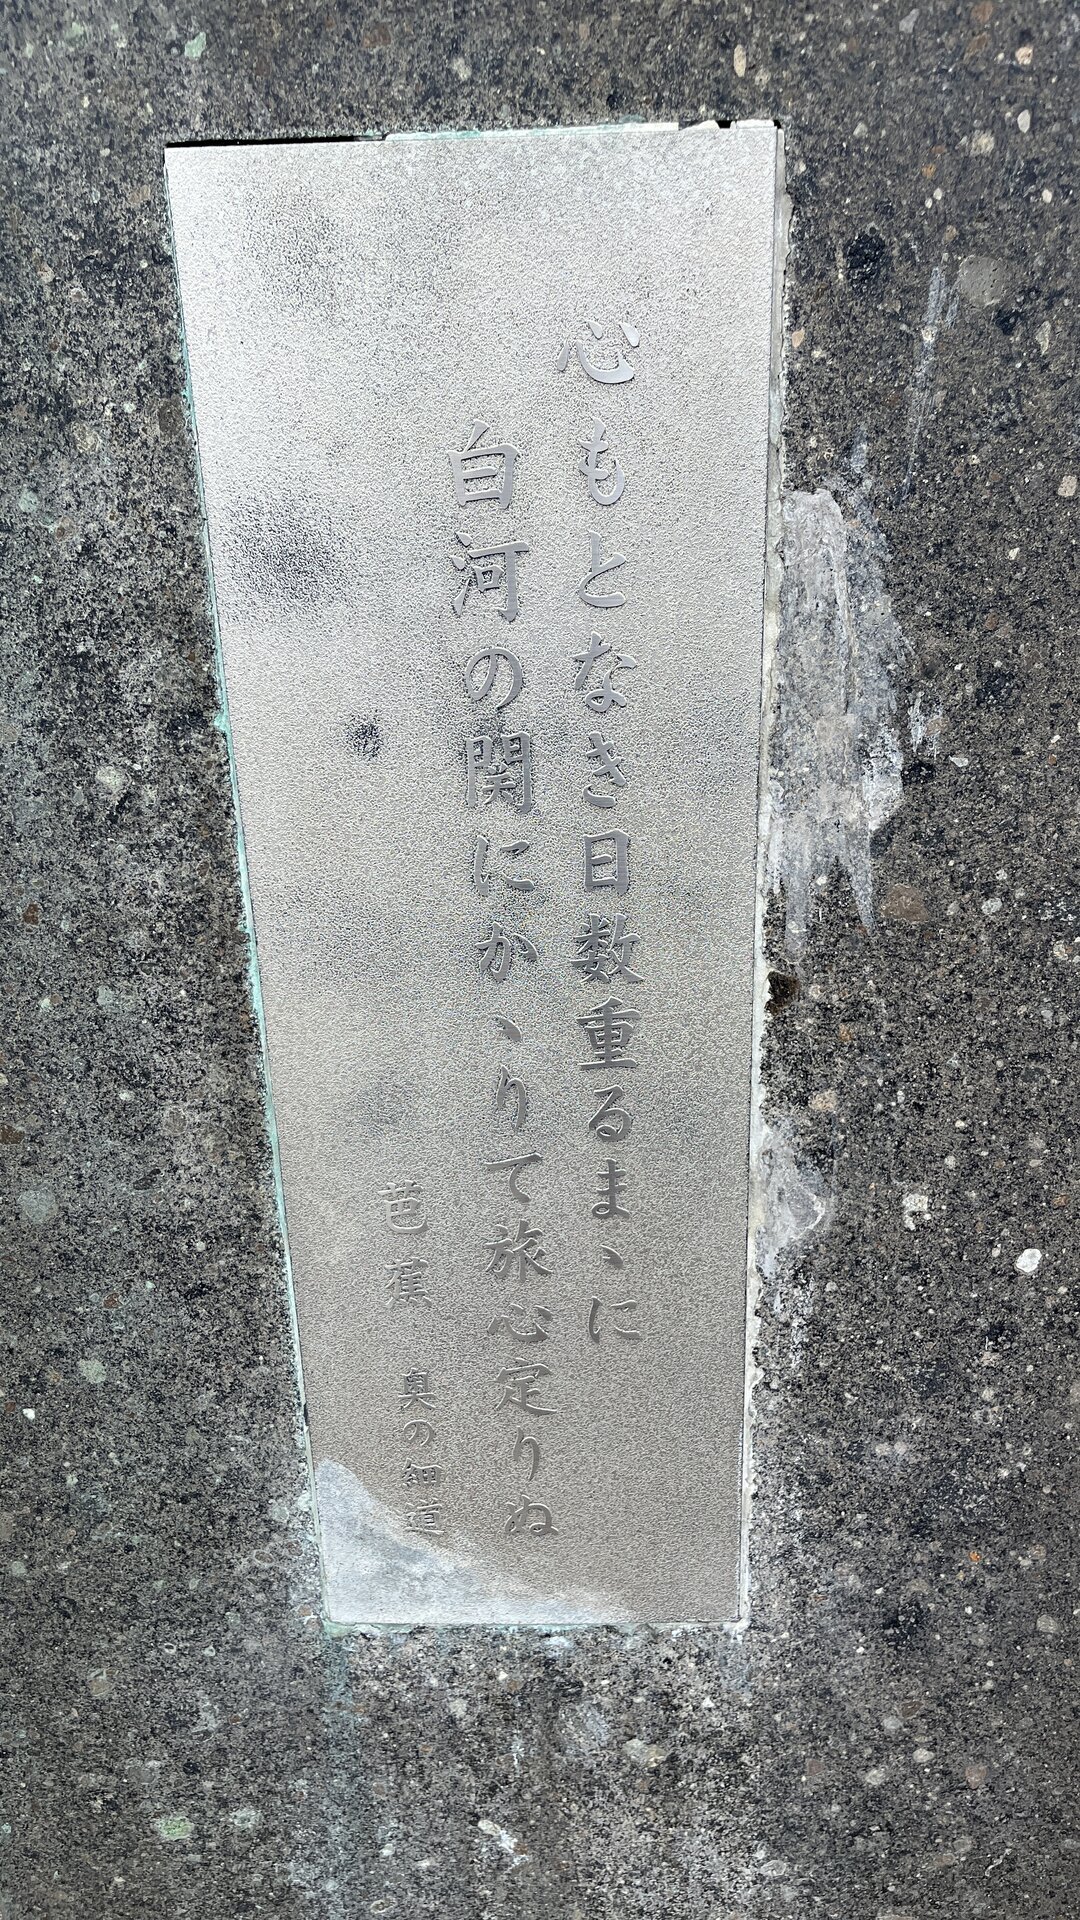 心もとなき日数重るまゝに
白河の関にかゝりて旅心定りぬ
芭蕉 奥の細道